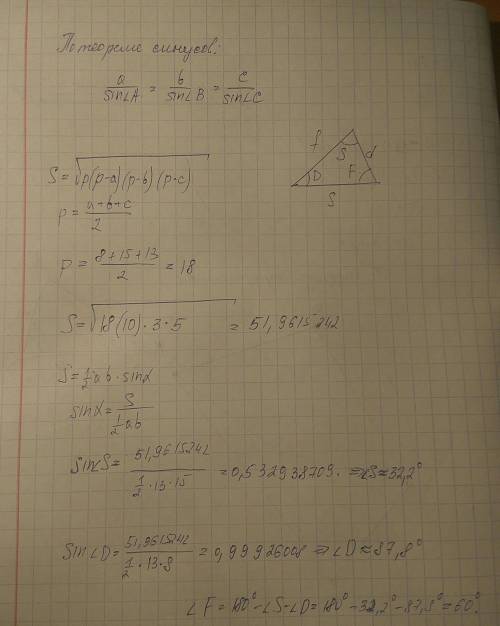 По теореме синусов:
a/sin∠A = b/sin∠B = c/sin∠C
f
S
d
D
F
S
S = √p(p-a)(p-b)(p-c)
p = a+b+c/2
p = 8+15+13/2 = 18
S = √18(10)·3·5 = 51,9615242
S = 1/2 ab·sinα
sinα = S/(1/2 ab)
sin∠S = 51,9615242/(1/2·13·15) = 0,532938709. ⇒∠S≈32,2°
sin∠D = 51,9615242/(1/2·13·8) = 0,99926008 ⇒ ∠D≈87,8°
∠F = 180°-∠S-∠D = 180°-32,2°-87,8° = 60°.